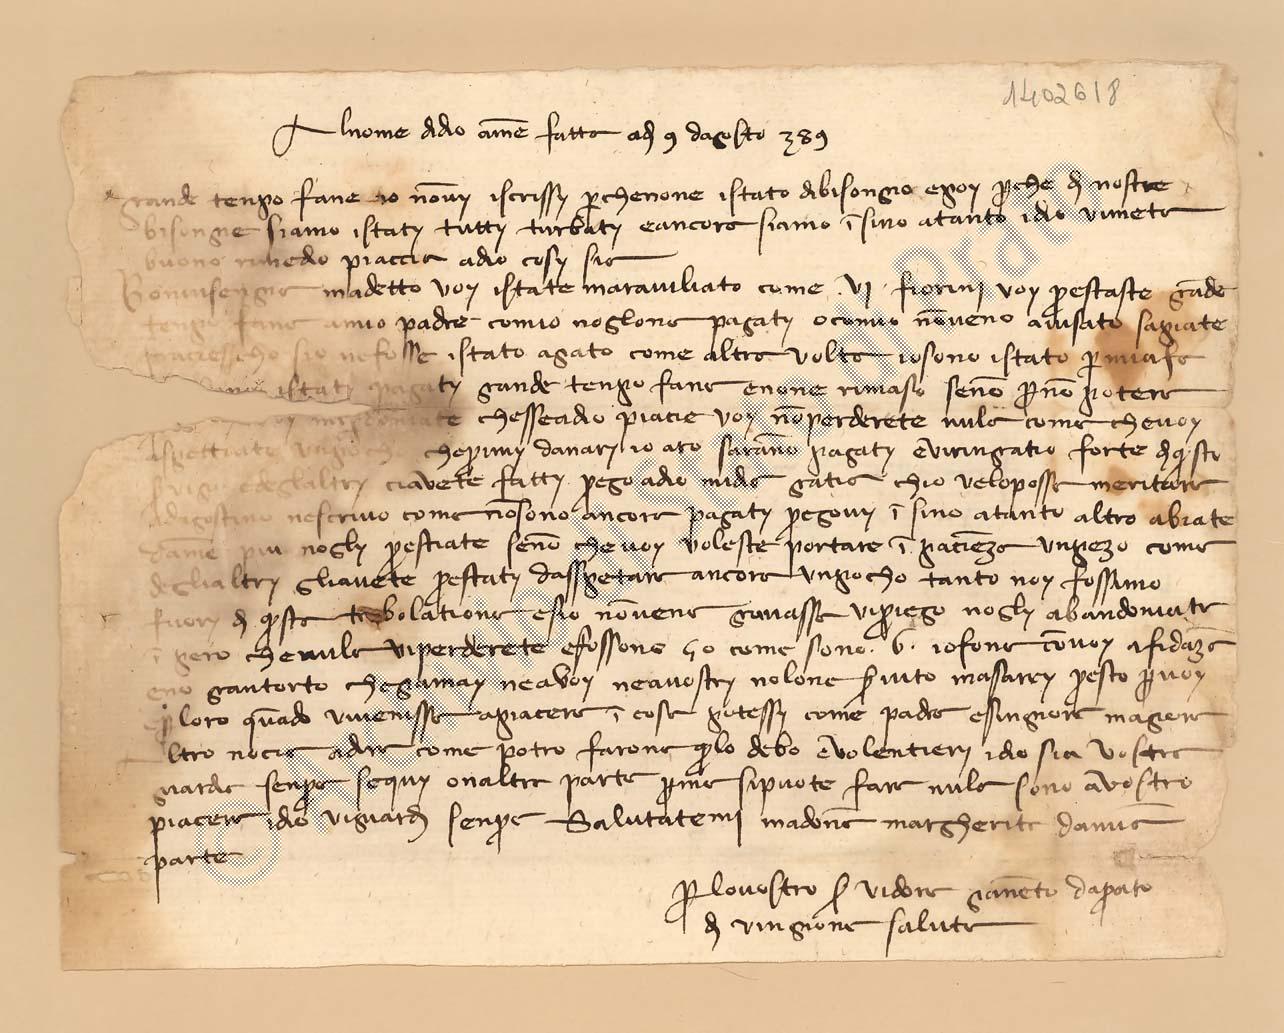 1402618
Alnome didio amē fatta adj 9 dagosto 389
grande tenpo fane io nōvvj iscrissj perchenone istato dibisongio evoj perche dj nostre
bisongie siamo istatj tuttj turbatj eancora siamo ī sino atanto idio vimeta
buono rimedio piaccia adio cosj sia
madetto voj istate maraviliato come VI fiorinj voj prestaste grāde
tenpo fane amio padre comio noglone pagatj ocomio nōveno avisato sapiate
sio nefosse istato agato come altre volte iosono istato
istatj pagatj grande tenpo fane enone rimaso senō per nō potere
chesseadio piacie voj nōperderete nula come chevoj
aspettiate unpocho cheprimj danarj io aro sarāno pagatj eviringratio forte dj questo
servigio edeglialtrj ciavete fattj prego adio mide gratia chio veloposse meritare
dagostino nescrivo come nosono ancora pagatj pregovj ī sino atanto altro abiate
dame piu noglj prestiate senō chevoj voleste portare ī pacienza unpezo come
deglialtrj gliavete prestatj daspetare ancora unpocho tanto noj fossimo
fuorj dj queste trebolatione esio nōvene gravasse vipriego noglj abandoniate
ī pero chenula viperderete efossono 50 come sono 6 iofone cōvoj afidāza
eno grantorto chegiamaj neavoj neavostrj nolone servito masarej presto per voj
per loro quādo vivenisse apiacere ī cosa potessj come padre esingnore magiore
altro nocie adire come potro farone quelo debo evolentierj idio sia vostra
guarda senpre sequj onaltra parte per me sipuote fare nula sono avostro
piacere idio viguardj senpre Salutatemj madona margherita damia
parte
Per lovostro servidore daprato
dj vingione salute